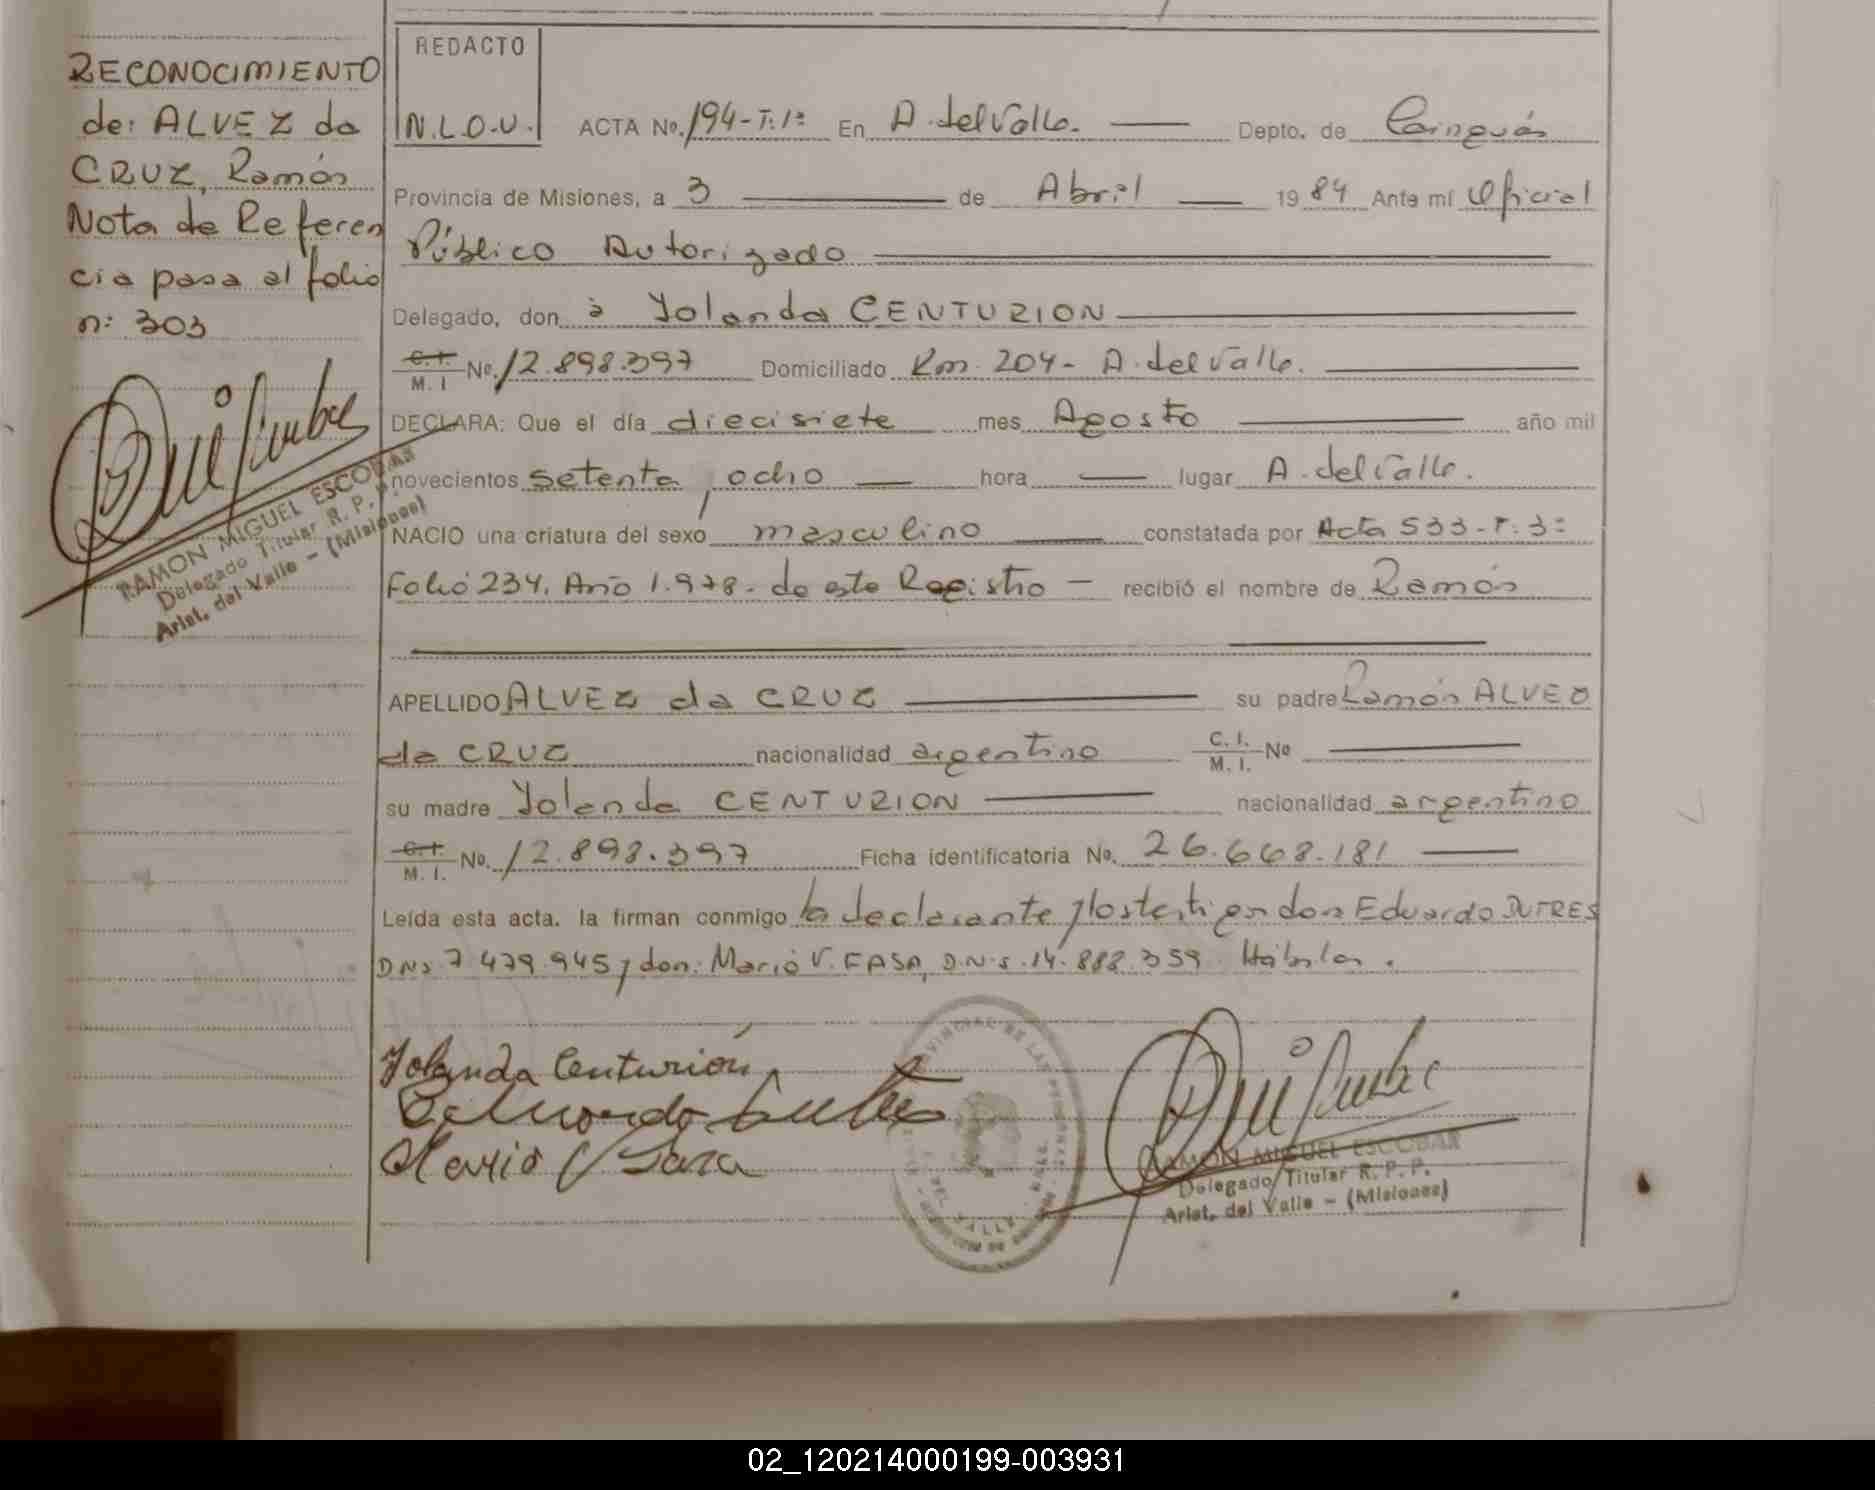 RECONOCIMIENTO
de: ALVEZ da
CRUZ, Ramón
Nota de Referen
cia pasa al folio
n: 303
RAMON MIGUEL ESCOBAR
Delegado Titular R. P. P.
Arist. del Valle - (Misiones)
REDACTO
N.L.O.V.
ACTA No. 194-T.1º En A. del Valle. Depto. de Cainguás
Provincia de Misiones, a 3 de Abril 1984 Ante mí Oficial
Público Autorizado
Delegado, don a Yolanda CENTURION
C.I. M. I No. 12.898.397 Domiciliado Km. 204- A. del Valle.
DECLARA: Que el día diecisiete mes Agosto año mil
novecientos setenta y ocho hora lugar A. del Valle.
NACIO una criatura del sexo masculino constatada por Acta 533-T.3º
Folio 234. Año 1.978. de este Registro recibió el nombre de Ramón
APELLIDO ALVEZ da CRUZ su padre Ramón ALVEZ
da CRUZ nacionalidad argentino C. I. M. I. No
su madre Yolanda CENTURION nacionalidad argentino
C.I. M. I. No. 12.898.397 Ficha identificatoria No. 26.668.181
Leída esta acta. la firman conmigo la declarante y los testigos don Eduardo DUTRES
7.479.945 y don: Mario V. 14.888.359 Hábiles.
Yolanda Centurión
Eduardo
Mario V
RAMON MIGUEL ESCOBAR
Delegado Titular R. P. P.
Arist. del Valle - (Misiones)
02_120214000199-003931